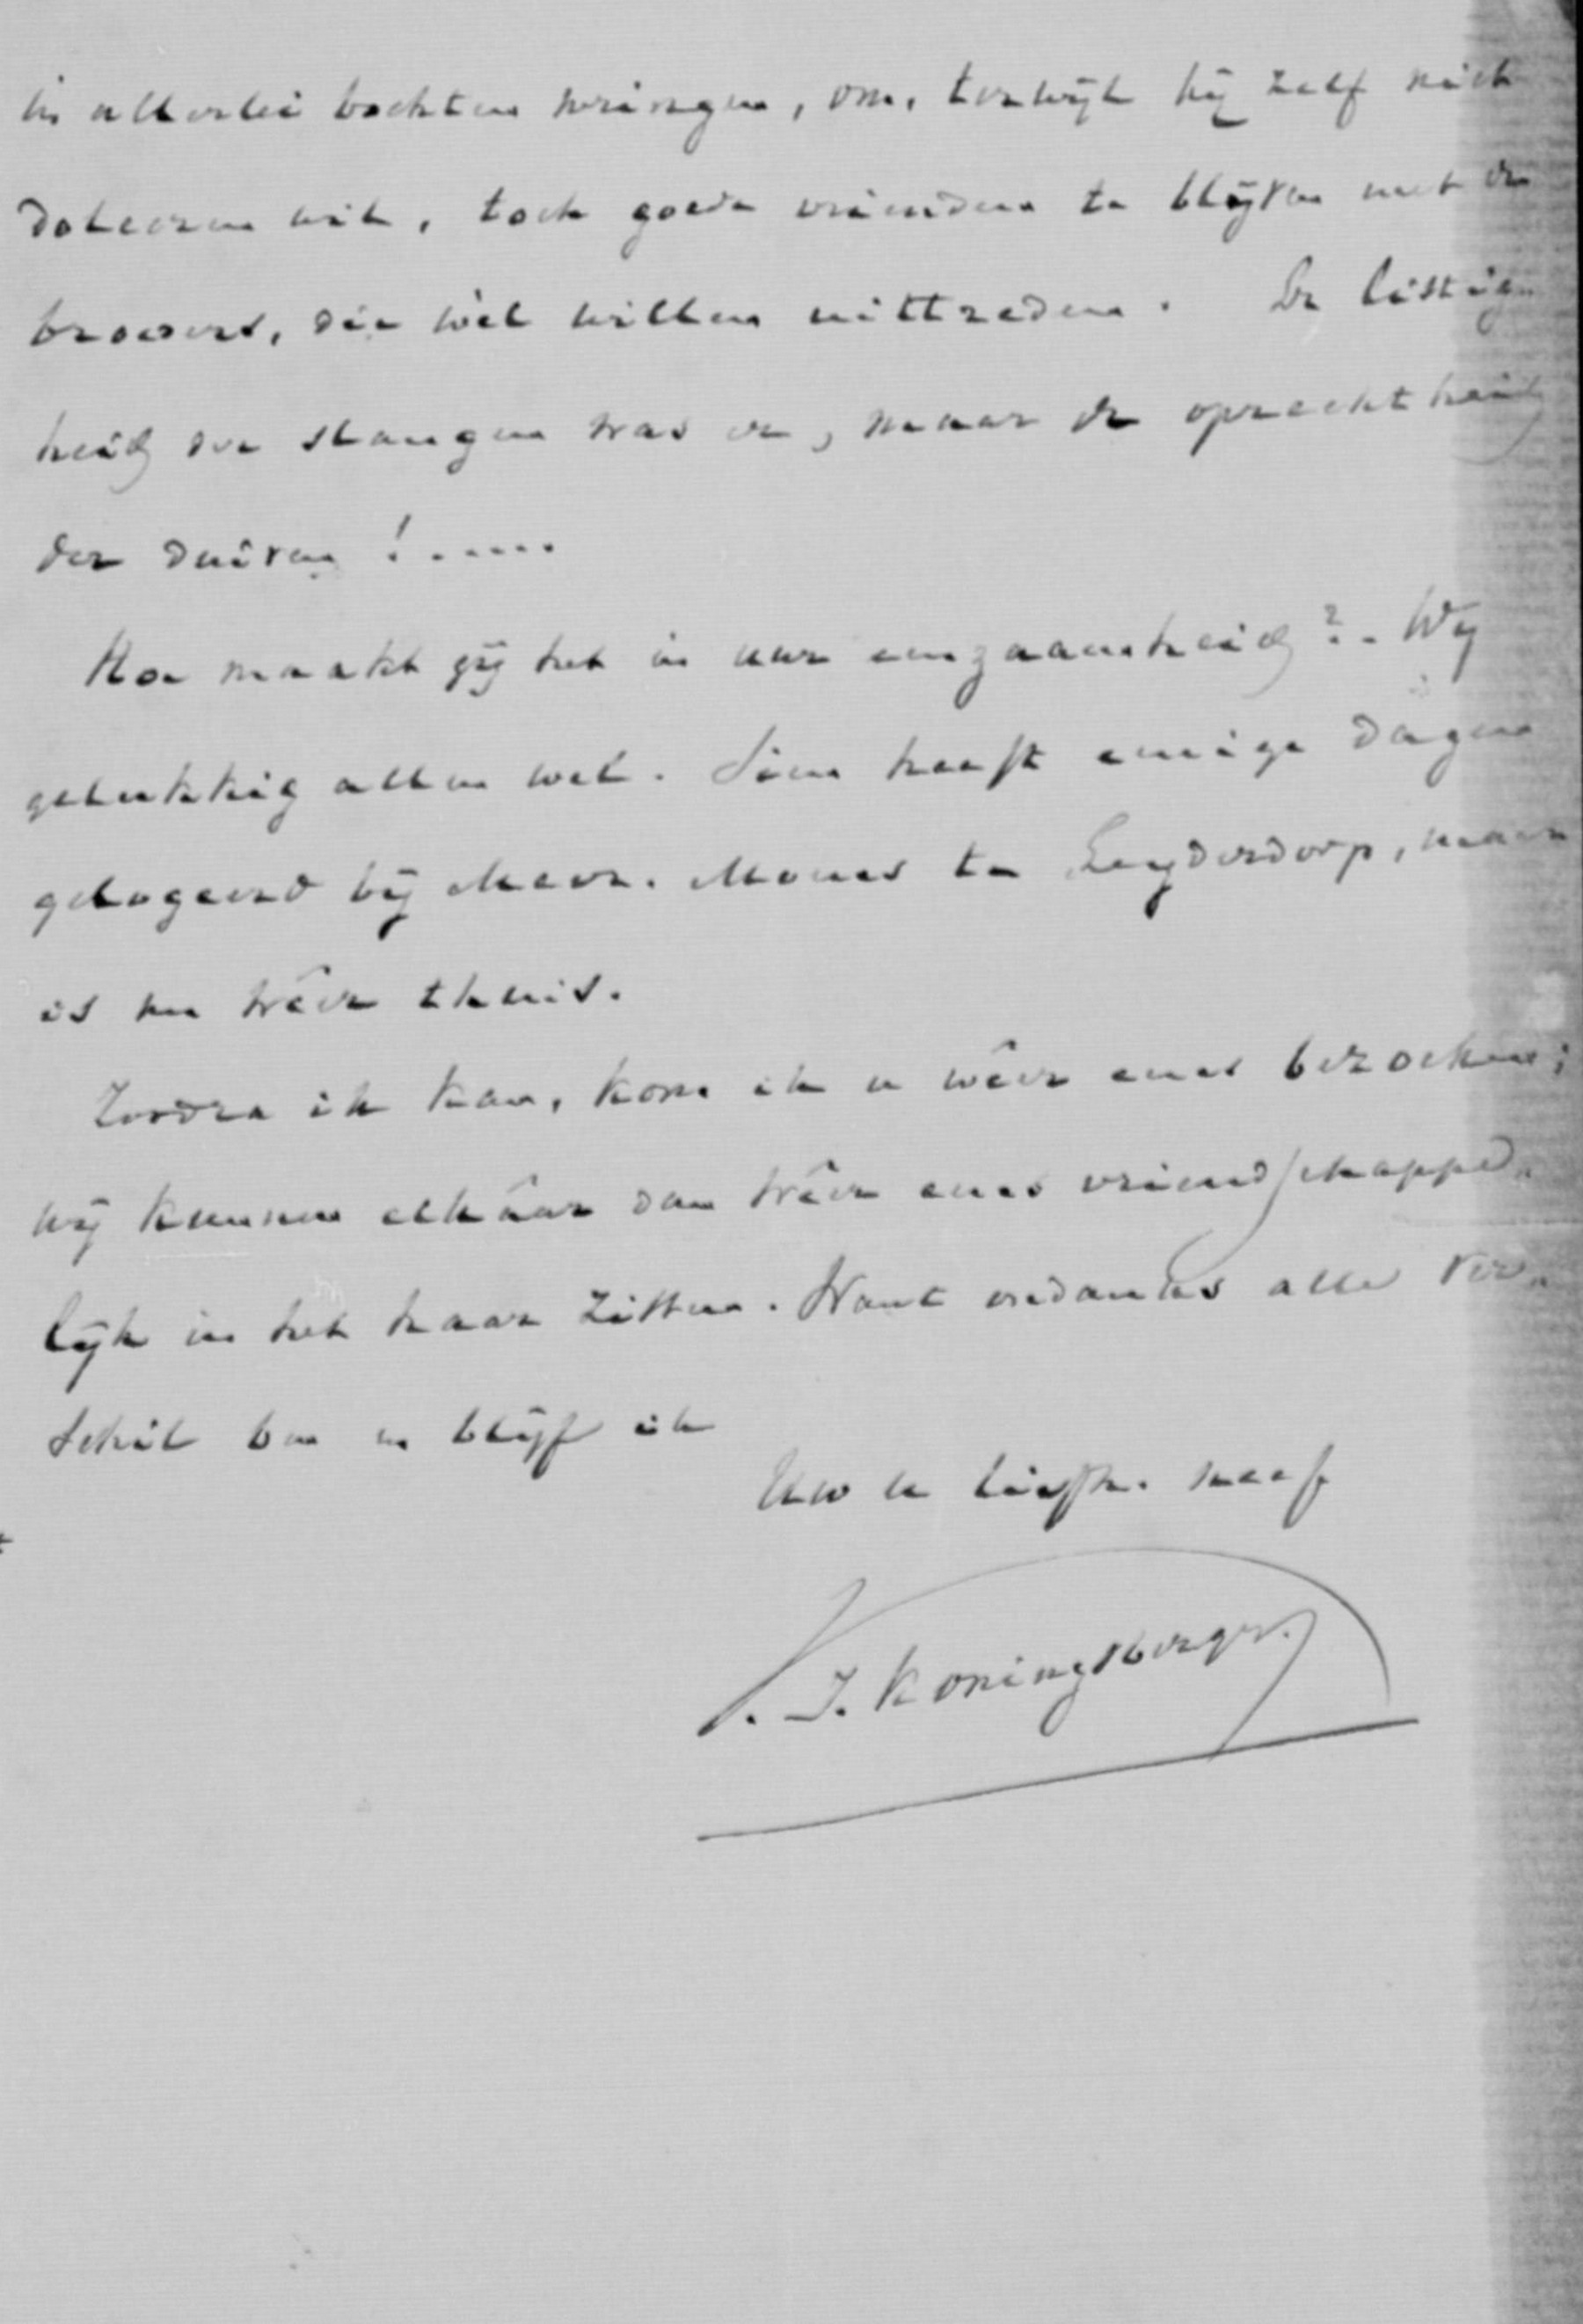 in allerlei bochten wringen, om, terwijl hij zelf niet
doleeren wil, toch goede vrienden te blijven met de
broeders, die wèl willen uittreden. De listig-
heid der slangen was er, maar de oprechtheid
der duiven!.....
Hoe maakt gij het in uwe eenzaamheid? - Wij
gelukkig allen wel. Sien heeft eenige dagen
gelogeerd bij Mevr. Moues te Leyderdorp, maar
is nu wêer thuis.
Zoodra ik kan, kom ik u wêer eens bezoeken;
wij kunnen elkâar dan wêer eens vriendschappe-
lijk in het haar zitten. Want ondanks alle ver-
schil ben en blijf ik
Uw u liefh. neef
V. J. Koningsberger.